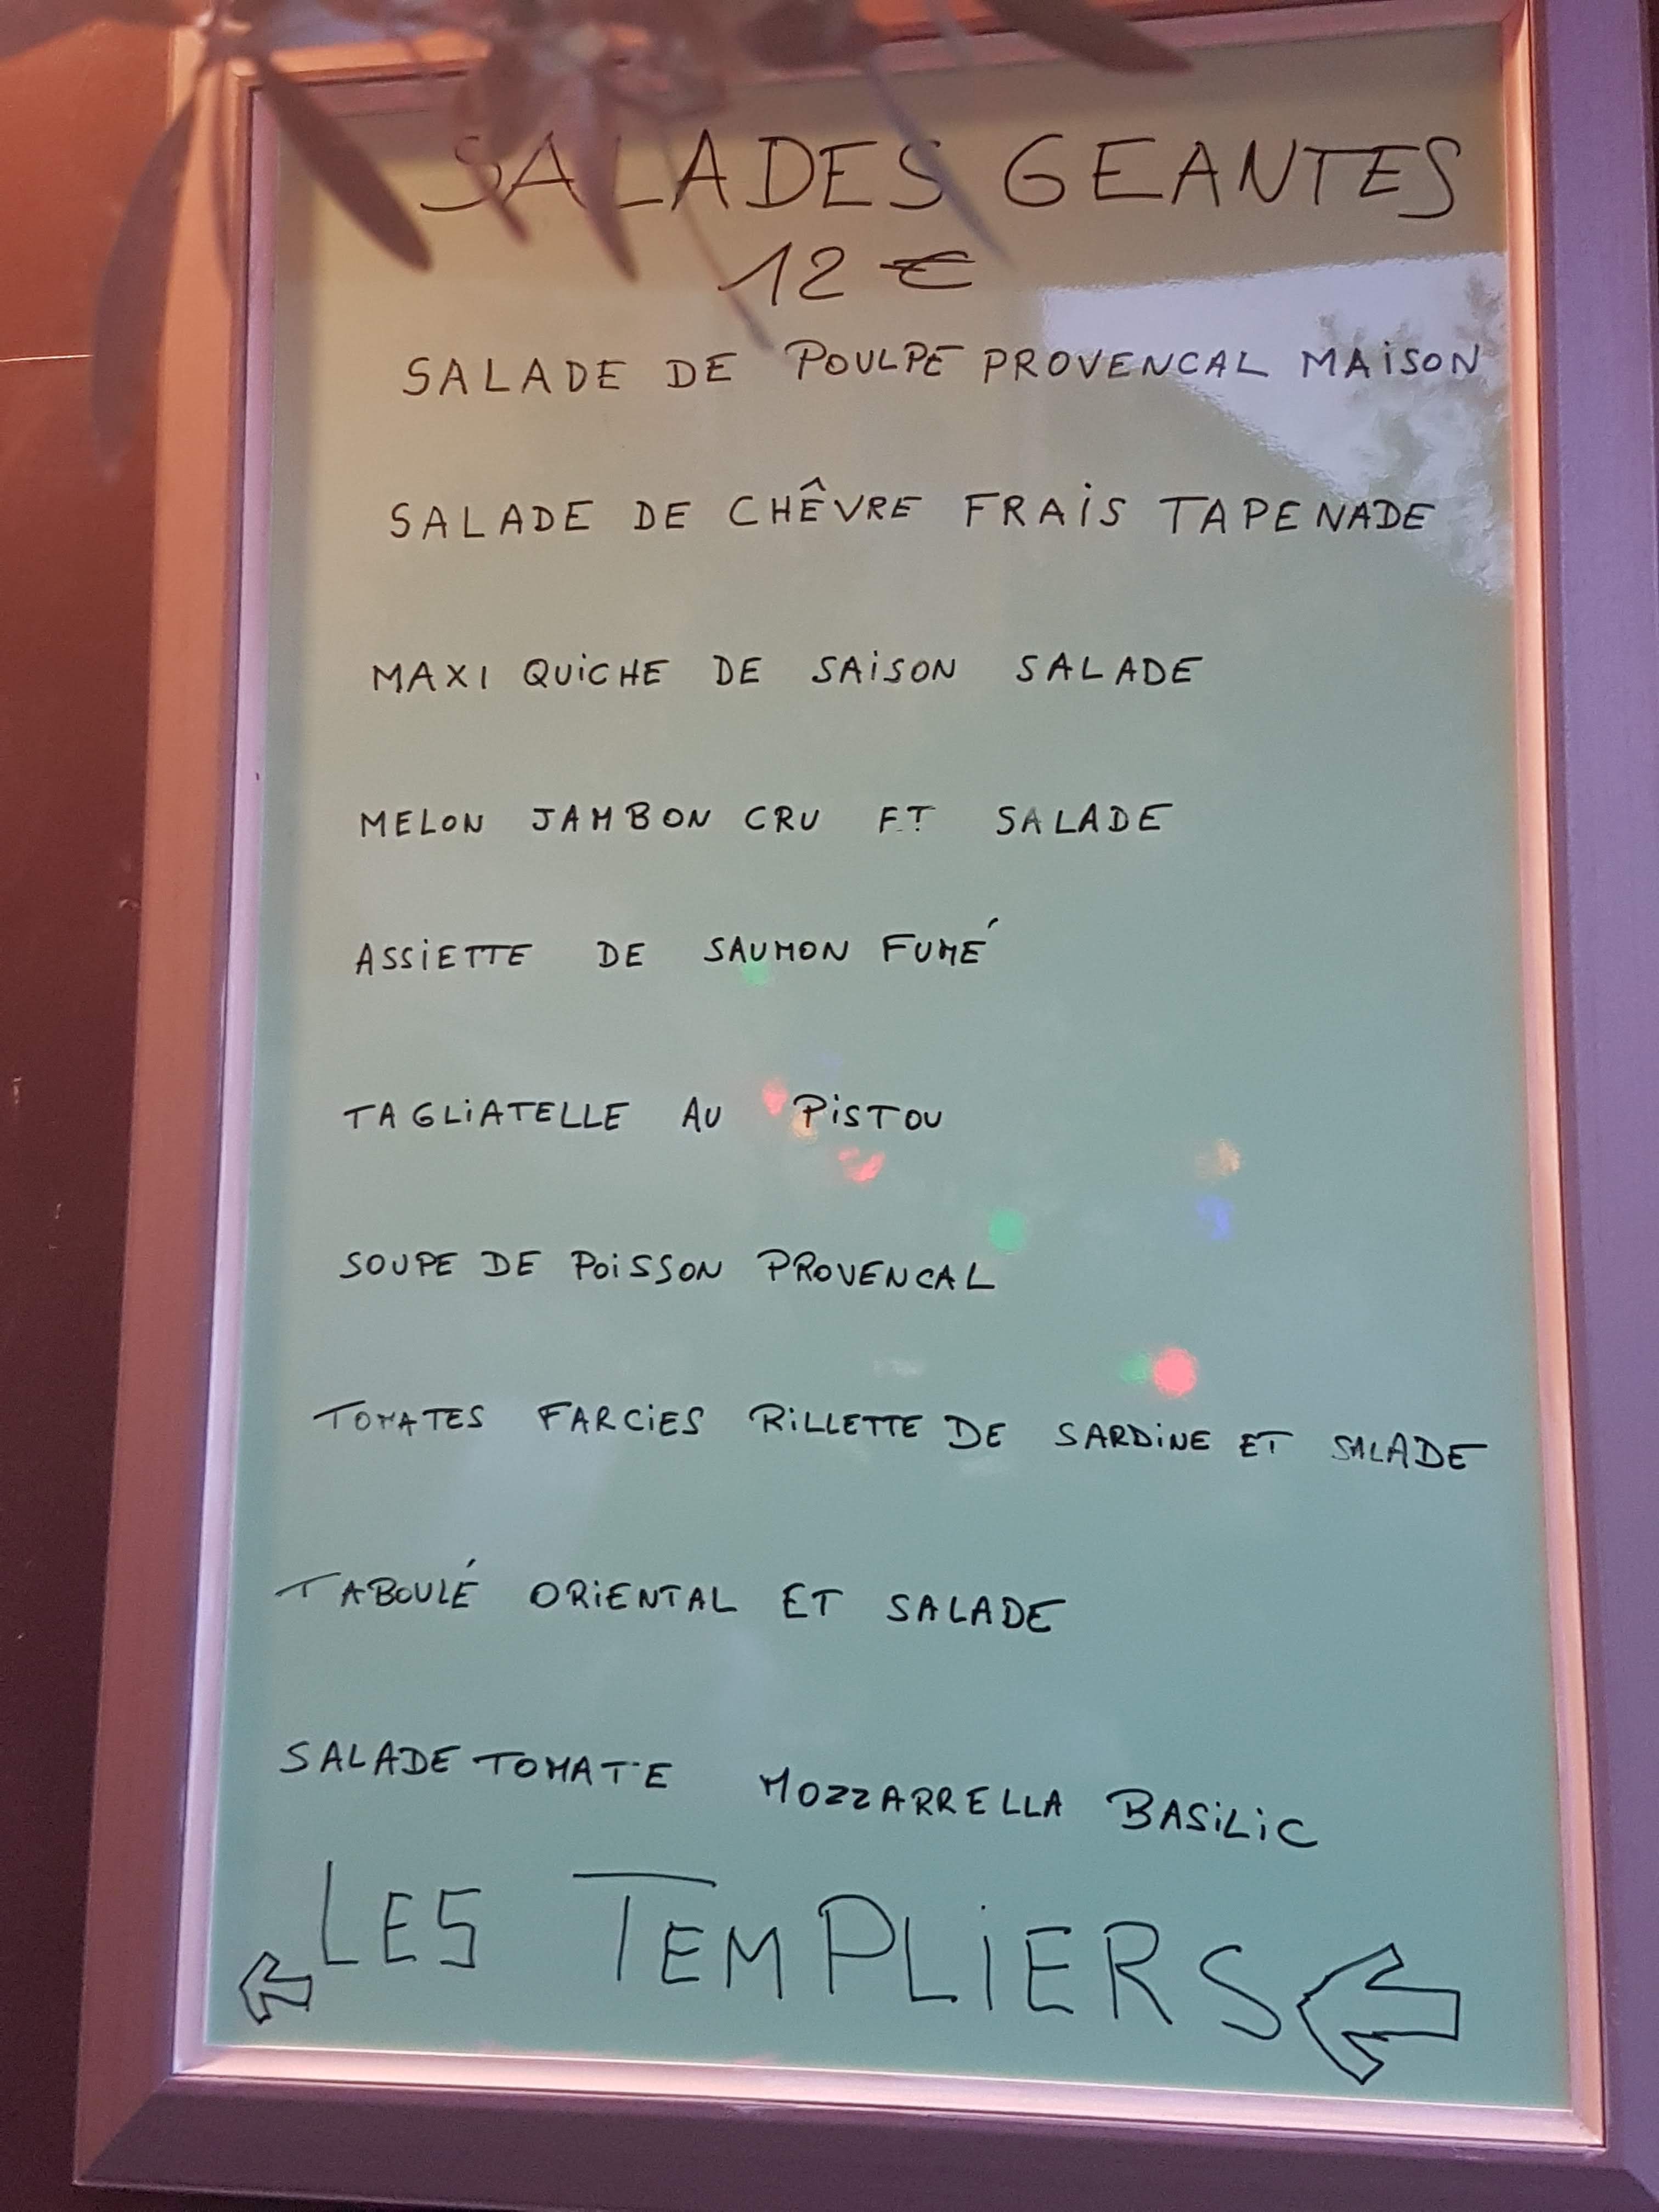 SALADES GEANTES
12 €
SALADE DE POULPE PROVENCAL MAiSON
SALADE DE CHÊVRE FRAiS TAPENADE
MAXI QUiCHE DE SAiSON SALADE
MELON JAMBON CRU ET SALADE
ASSiETTE DE SAUMON FUMÉ
TAGLiATELLE AU PiSTOU
SOUPE DE POiSSON PROVENCAL
TOMATES FARCiES RiLLETTE DE SARDiNE ET SALADE
TABOULÉ ORiENTAL ET SALADE
SALADE TOMATE MOZZARRELLA BASiLiC
LES TEMPLiERS